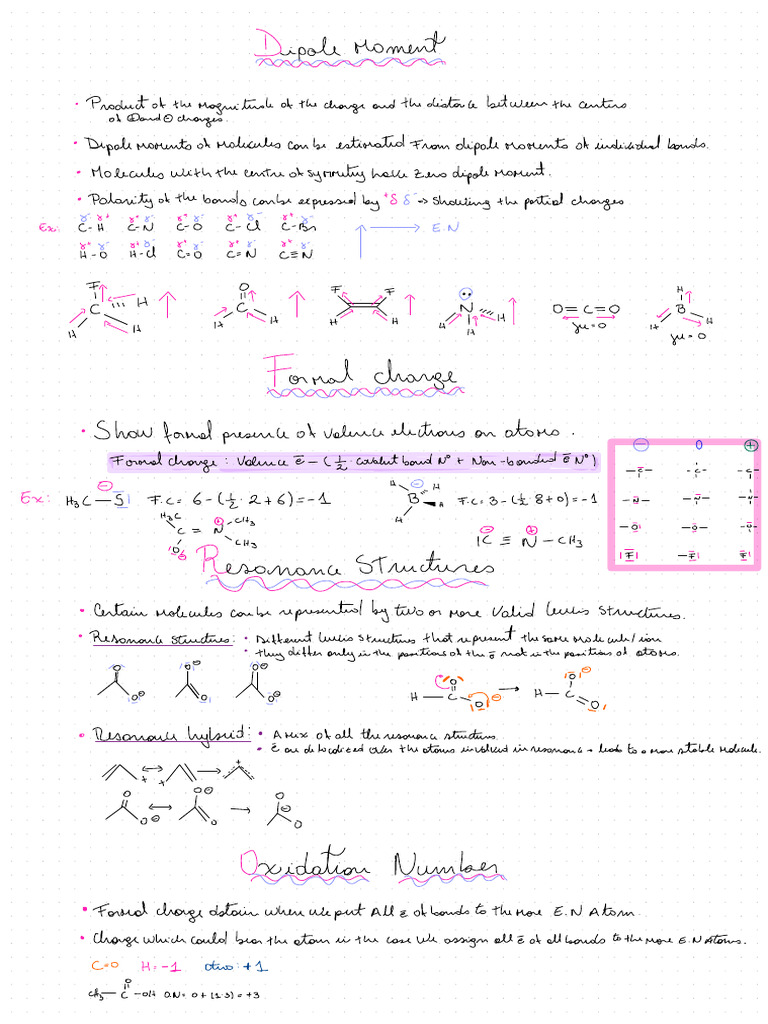 Dipole Moment
• Product of the magnitude of the charge and the distance between the centers
of ⊕ and ⊖ charges.
• Dipole moments of molecules can be estimated from dipole moments of individual bonds.
• Molecules with the centre of symmetry have zero dipole moment.
• Polarity of the bonds can be expressed by +δ δ- → showing the partial charges
Ex: C-H C-N C-O C-Cl C-Br E.N
H-O H-Cl C=O C=N C≡N
F C H H H
O C H H
F F H H
N H H H
O=C=O μ=0
H B H H μ=0
Formal charge
• Show formal presence of valence electrons on atoms.
Formal charge: Valence e̅ - (½ · covalent bond N° + Non-bonded e̅ N°)
⊖ 0 ⊕
-C- -C- -C-
-N- -N- -N-
-O- -O- -O-
|F| -F| F|
Ex: H3C-S| ⊖ F.C = 6-(½·2+6)=-1
H ⊖ H B H H F.C=3-(½·8+0)=-1
H3C C=N ⊕ CH3 CH3 |O| ⊖
⊖ |C≡N ⊕ -CH3
Resonance Structures
• Certain molecules can be represented by two or more valid lewis structures.
• Resonance structures: • Different lewis structures that represent the same molecule/ion
• they differ only in the positions of the e̅ not in the positions of atoms.
O O⊖ O⊖ O O O⊖
H-C O O⊖ → H-C O⊖ O
• Resonance hybrid: • A mix of all the resonance structures.
• e̅ are delocalized over the atoms involved in resonance → leads to a more stable molecule.
+ ↔ + → +
O O⊖ ↔ O⊖ O → O ⊖ O
Oxidation Number
• Formal charge obtain when we put All e̅ of bonds to the more E.N Atom.
• Charge which could bear the atom in the case we assign all e̅ of all bonds to the more E.N atoms.
C=0 H=-1 otro: +1
CH3-C-OH O O.N= 0+(1·3)=+3